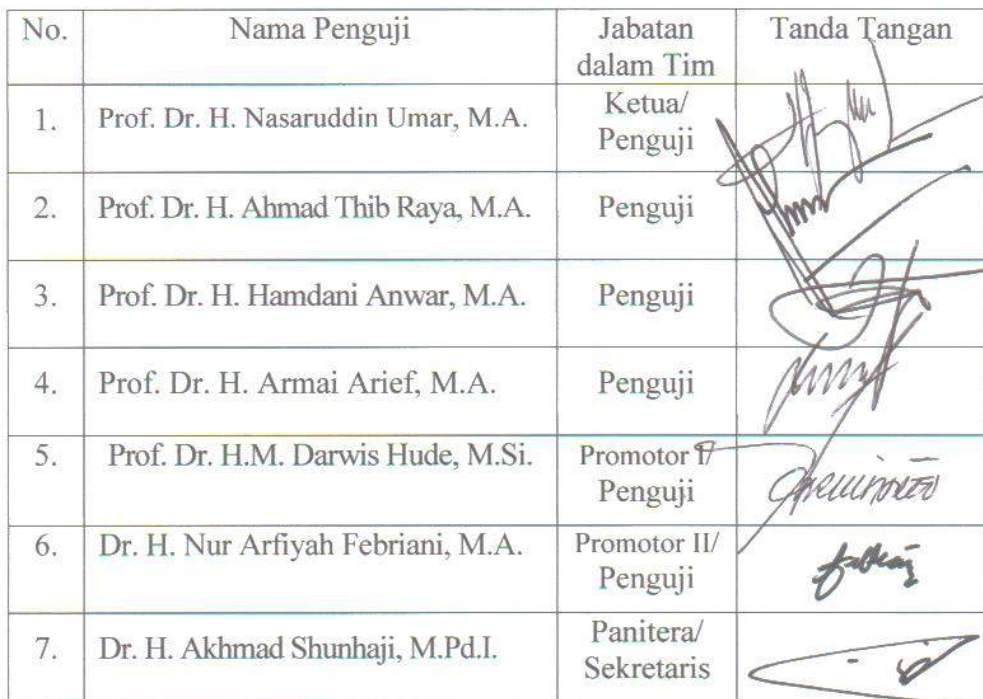 No. Nama Penguji Jabatan dalam Tim Tanda Tangan
1. Prof. Dr. H. Nasaruddin Umar, M.A. Ketua/ Penguji
2. Prof. Dr. H. Ahmad Thib Raya, M.A. Penguji
3. Prof. Dr. H. Hamdani Anwar, M.A. Penguji
4. Prof. Dr. H. Armai Arief, M.A. Penguji
5. Prof. Dr. H.M. Darwis Hude, M.Si. Promotor I/ Penguji
6. Dr. H. Nur Arfiyah Febriani, M.A. Promotor II/ Penguji
7. Dr. H. Akhmad Shunhaji, M.Pd.I. Panitera/ Sekretaris